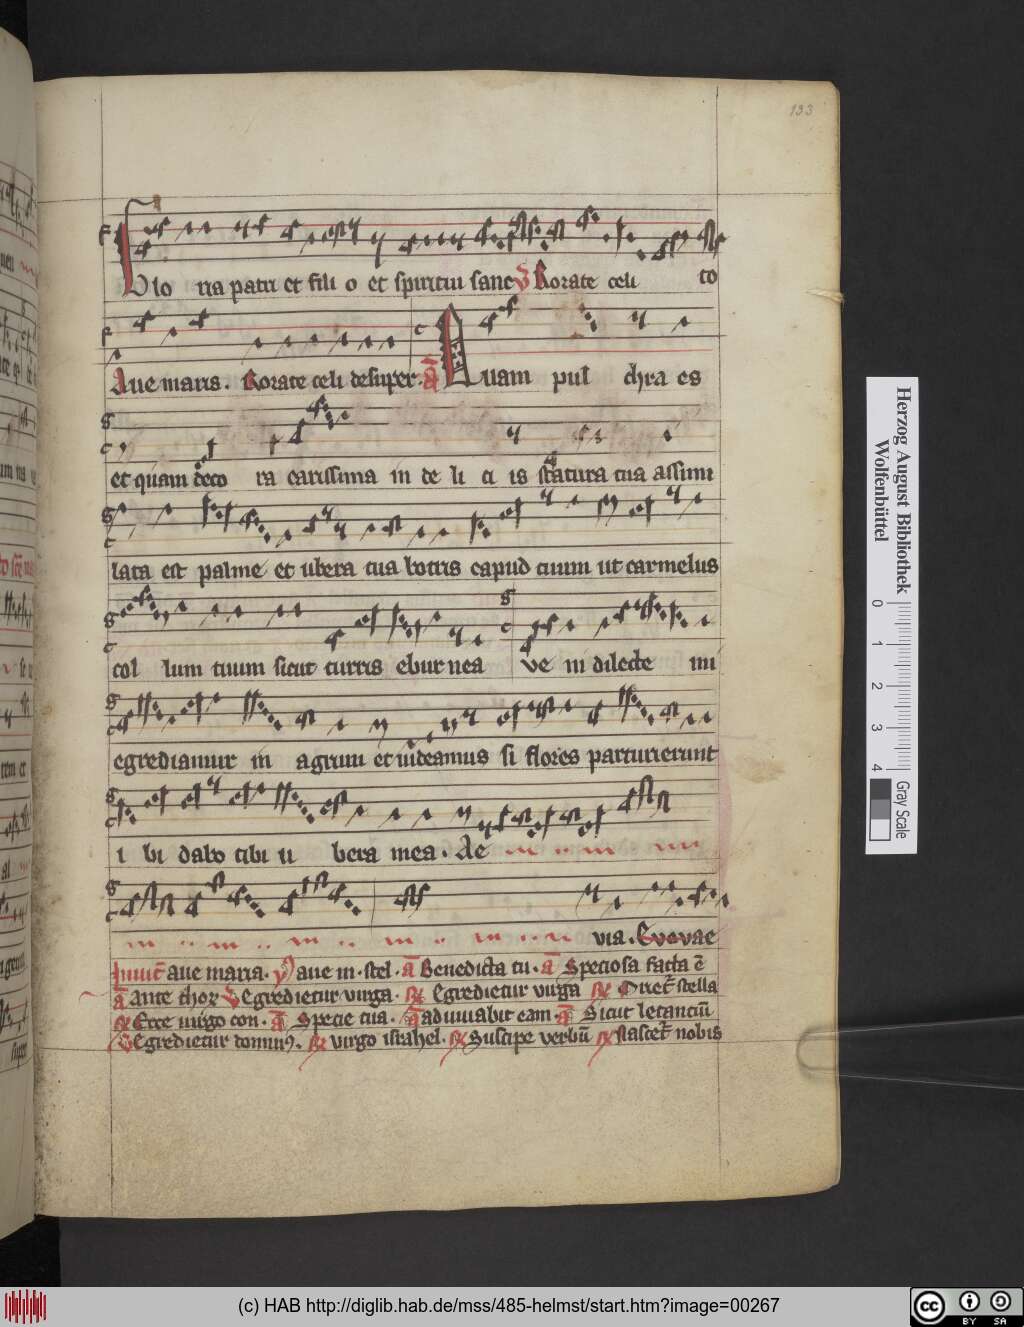 133
Glo ria patri et fili o et spiritui sanc V Rorate celi to
Aue maris. Rorate celi desuper. a Quam pul chra es
et quam deco ra carissima in de li ci is statura tua assimi
lata est palme et ubera tua botris capud tuum ut carmelus
col lum tuum sicut turris eburnea Ve ni dilecte mi
egrediamur in agrum et uideamus si flores parturierunt
i bi dabo tibi u bera mea. Ae
uia. Evovae
Inuit aue maria. aue m. stel. a Benedicta tu. a Speciosa facta e
a Ante thor V Egredietur uirga. Egredietur uirga stella
Ecce uirgo con. a Specie tua. a adiuuabit eam. a Sicut letanciu
V Egredietur dominus. uirgo israhel. Suscipe verbu nobis
Herzog August Bibliothek
Wolfenbüttel
0 1 2 3 4
Gray Scale
(c) HAB http://diglib.hab.de/mss/485-helmst/start.htm?image=00267
cc BY SA